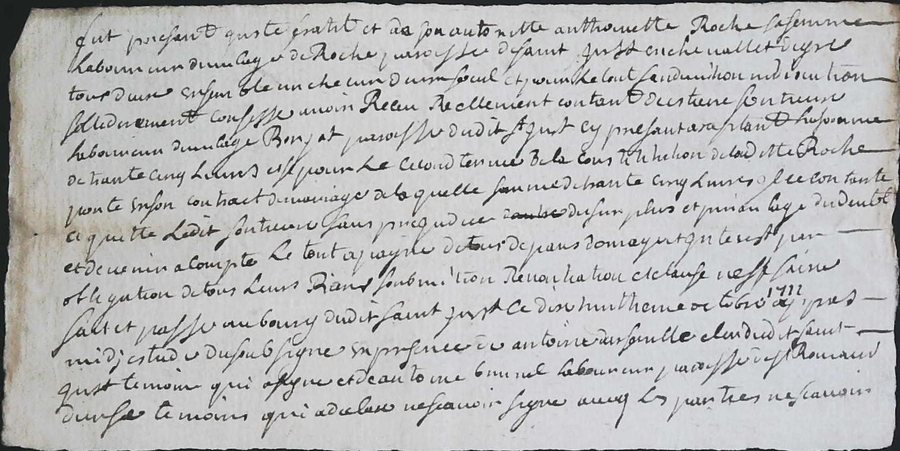 fut presant qui de gratit et de son autoritte anthoinette Roche sa femme
Laboureur du vilage de Roche paroisse de saint Just en chevallet Lesquels
tous deux ensemble un checun deux seul et pour le tout sans division ni discution
sollidairement confesse avoir Receu Reellement contant d'estiene
Laboureur du vilage Bonjat paroisse dudit st Just cy presant acceptant la somme
de trante cinq Livres et ce pour Le segond terme de la constitution de laditte Roche
porte en son contract de mariage de laquelle somme de trante cinq Livres il se contante
et quitte Ledit sans prejudice du surplus et privilage du deubt
et devenir a compte Le tout a payne de tous depans domages et interest par
obligation de tous Leurs Biens soubmition Renontiation et clause necessaire
fait et passe au bourg dudit saint Just ce dix huitieme octobre 1711 apres
midj estude du soubsigne en presence de antoine clerc dudit saint
Just temoin qui a signe et de antoine brunel Laboureur paroisse de st Romain
durfe temoins qui a declare ne scavoir signe avecq Les parties ne scavoir